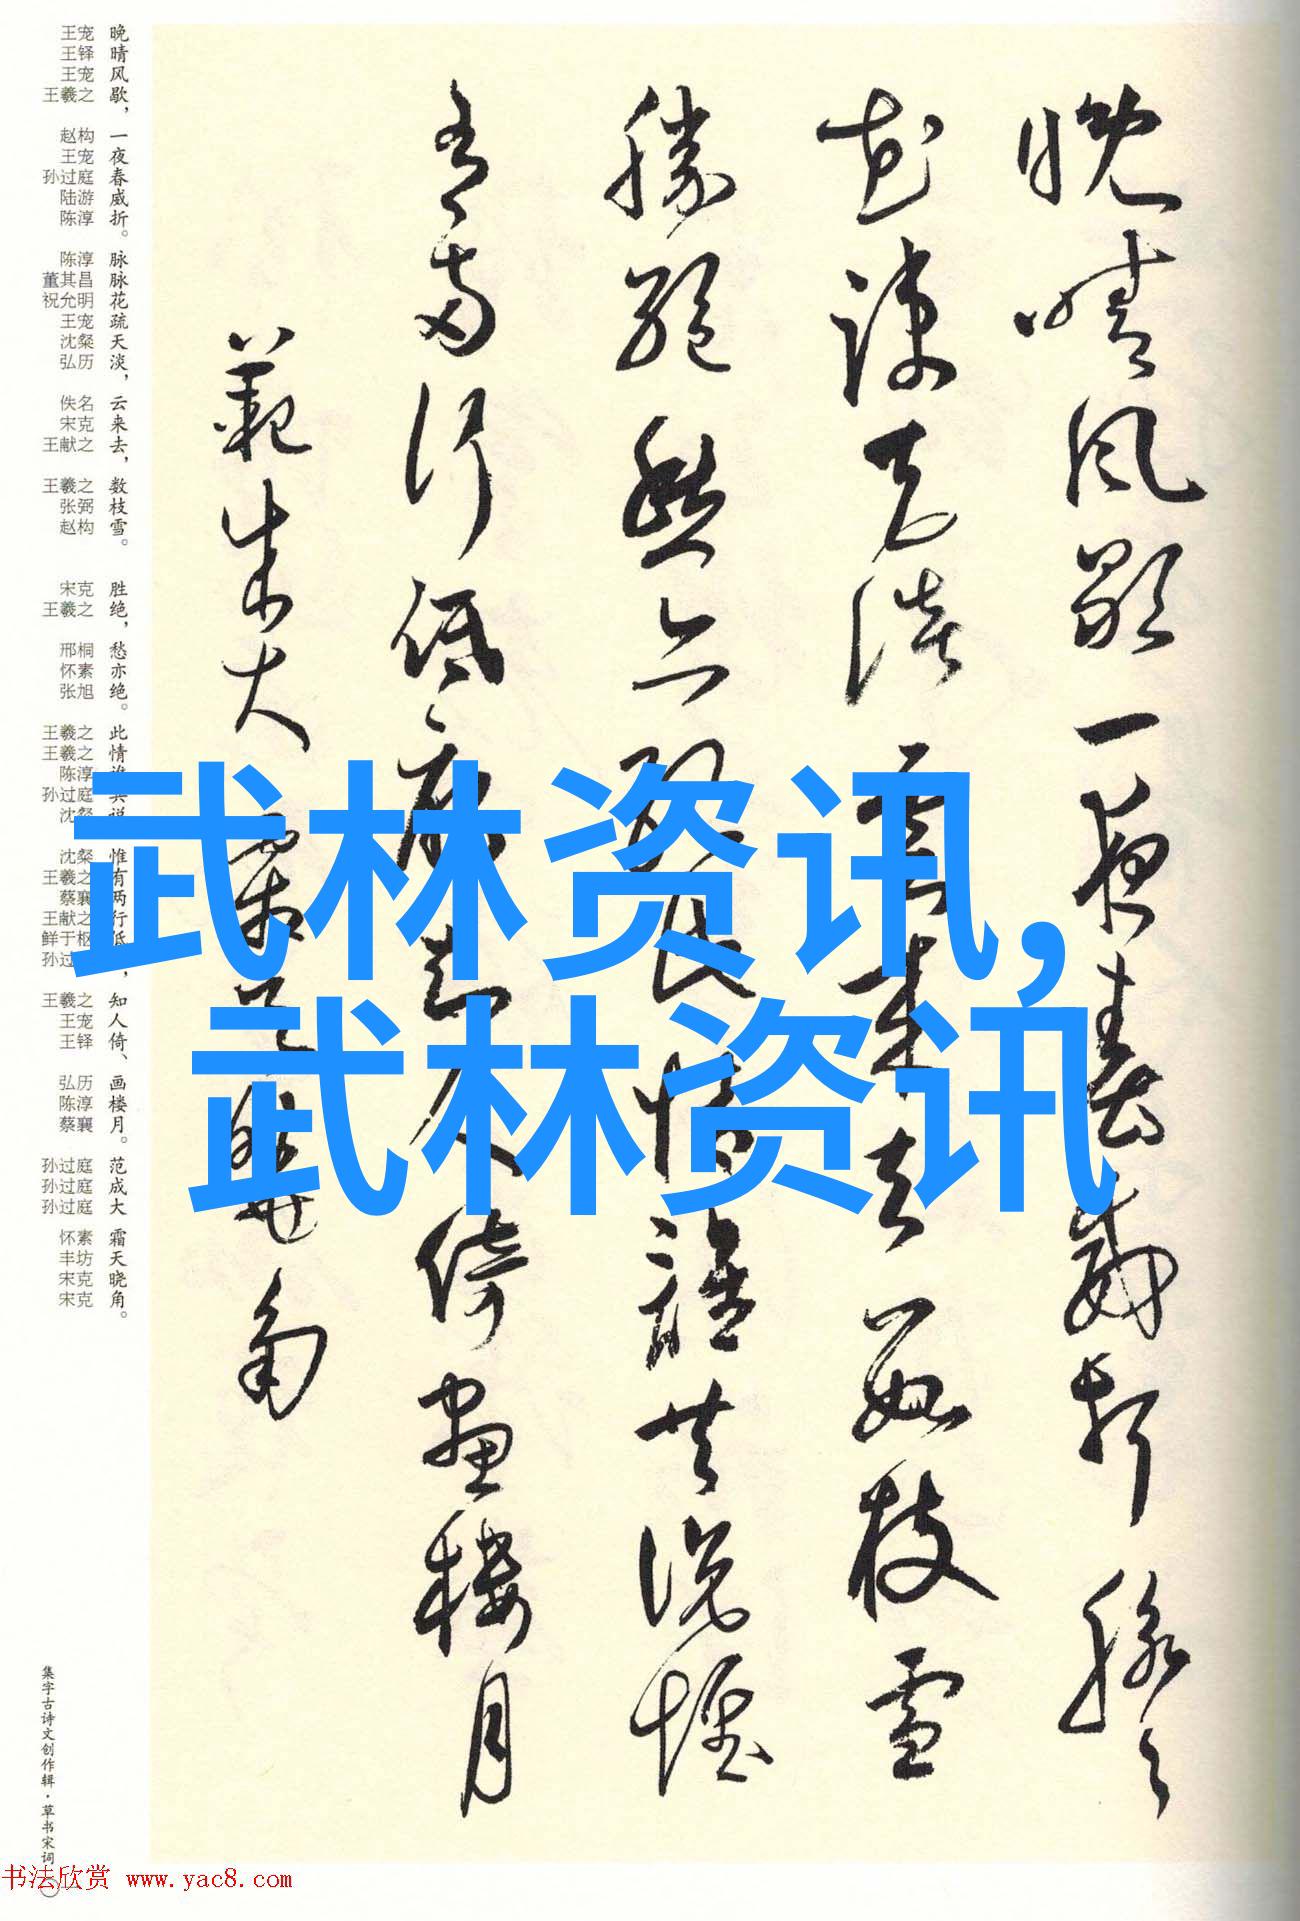 晚晴风歇一夜春威折脉脉
花疏天淡云来去数枝雪
胜绝愁亦绝此情谁共说惟
有两行低雁知人倚画楼月
范成大霜天晓角
武林资讯,
武林资讯
晚晴风歇，
王宠
王铎
王宠
王羲之
一夜春威折。
赵构
王宠
孙过庭
陆游
陈淳
脉脉花疏天淡，
陈淳
董其昌
祝允明
王宠
沈粲
弘历
云来去，
佚名
宋克
王献之
数枝雪。
王羲之
张弼
赵构
胜绝，
宋克
王羲之
愁亦绝。
邢桐
怀素
张旭
此情
王羲之
王羲之
陈淳
孙过庭
沈粲
惟有两行低
沈粲
王羲之
蔡襄
王献之
鲜于枢
孙过
知人倚、
王羲之
王宠
王铎
画楼月。
弘历
陈淳
蔡襄
范成大
孙过庭
孙过庭
孙过庭
霜天晓角。
怀素
丰坊
宋克
宋克
集字古诗文创作辑·草书宋词
书法欣赏 www.yac8.com